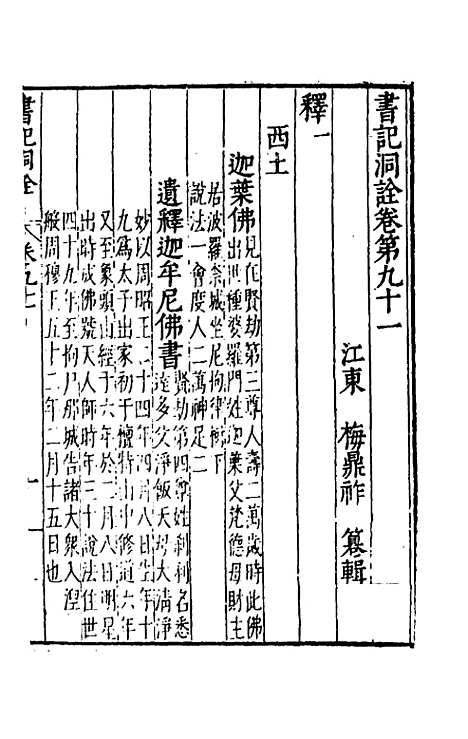 書記洞詮卷第九十一
江東 梅鼎祚 纂輯
釋一
西土
迦葉佛 見在賢劫第三尊人壽二萬歲時此佛
出世種婆羅門姓迦葉父梵德母財主
居波羅奈城坐尼拘律樹下
說法一會度人二萬神足二
遺釋迦牟尼佛書 賢劫第四尊姓刹利名悉
達多父淨飯天母大清淨
妙以周昭王二十四年四月八日生年十
九爲太子出家初于檀特山中修道六年
又至象頭山經于六年於二月八日明星
出時成佛號天人師時年三十說法住世
四十九年至拘尸那城告諸大衆入涅
般周穆王五十二年二月十五日也
書記洞詮